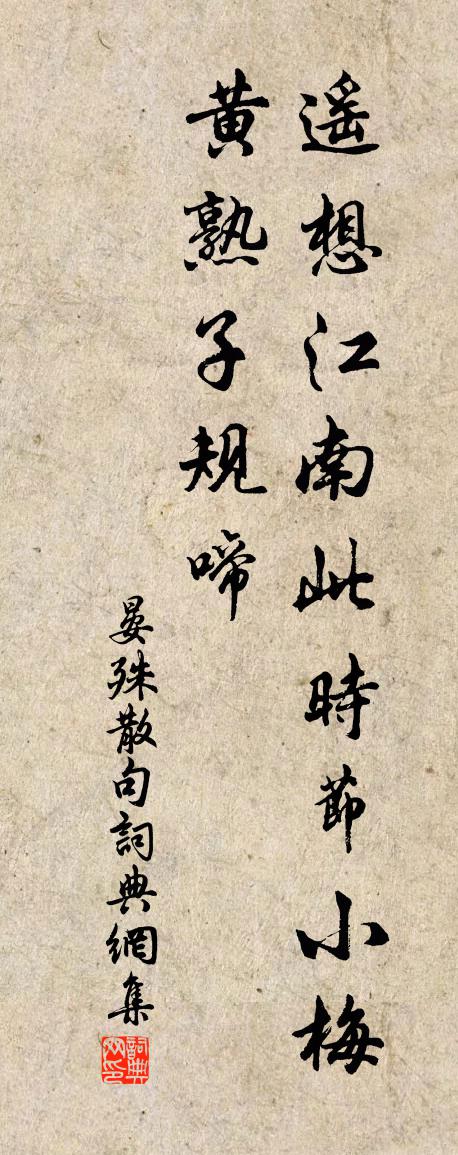 遥想江南此時節小梅
黄熟子規啼
晏殊散句詞典網集
詞典
网印